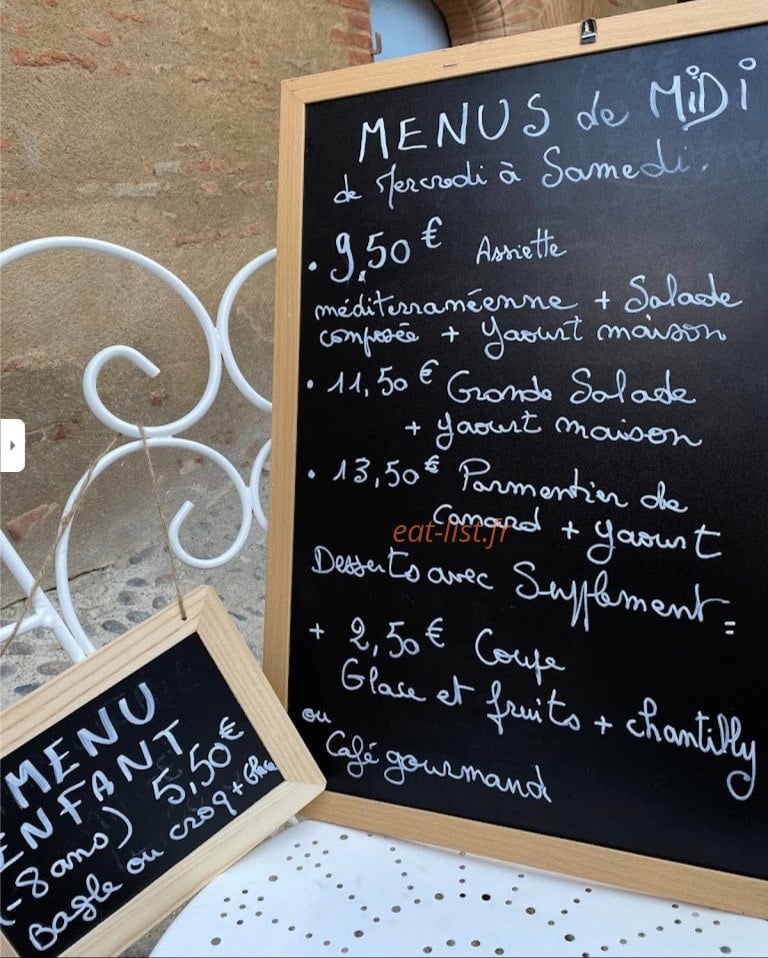 MENUS de MiDi
de Mercredi à Samedi.
• 9,50 € Assiette
méditerranéenne + Salade
composée + yaourt maison
• 11,50 € Grande Salade
+ yaourt maison
• 13,50 € Parmentier de
Canard + yaourt
eat-list.fr
Desserts avec Supplément =
+ 2,50 € Coupe
Glace et fruits + chantilly
ou
Café gourmand
MENU
ENFANT
(-8 ans) 5,50€
Bagle ou croq + Glace